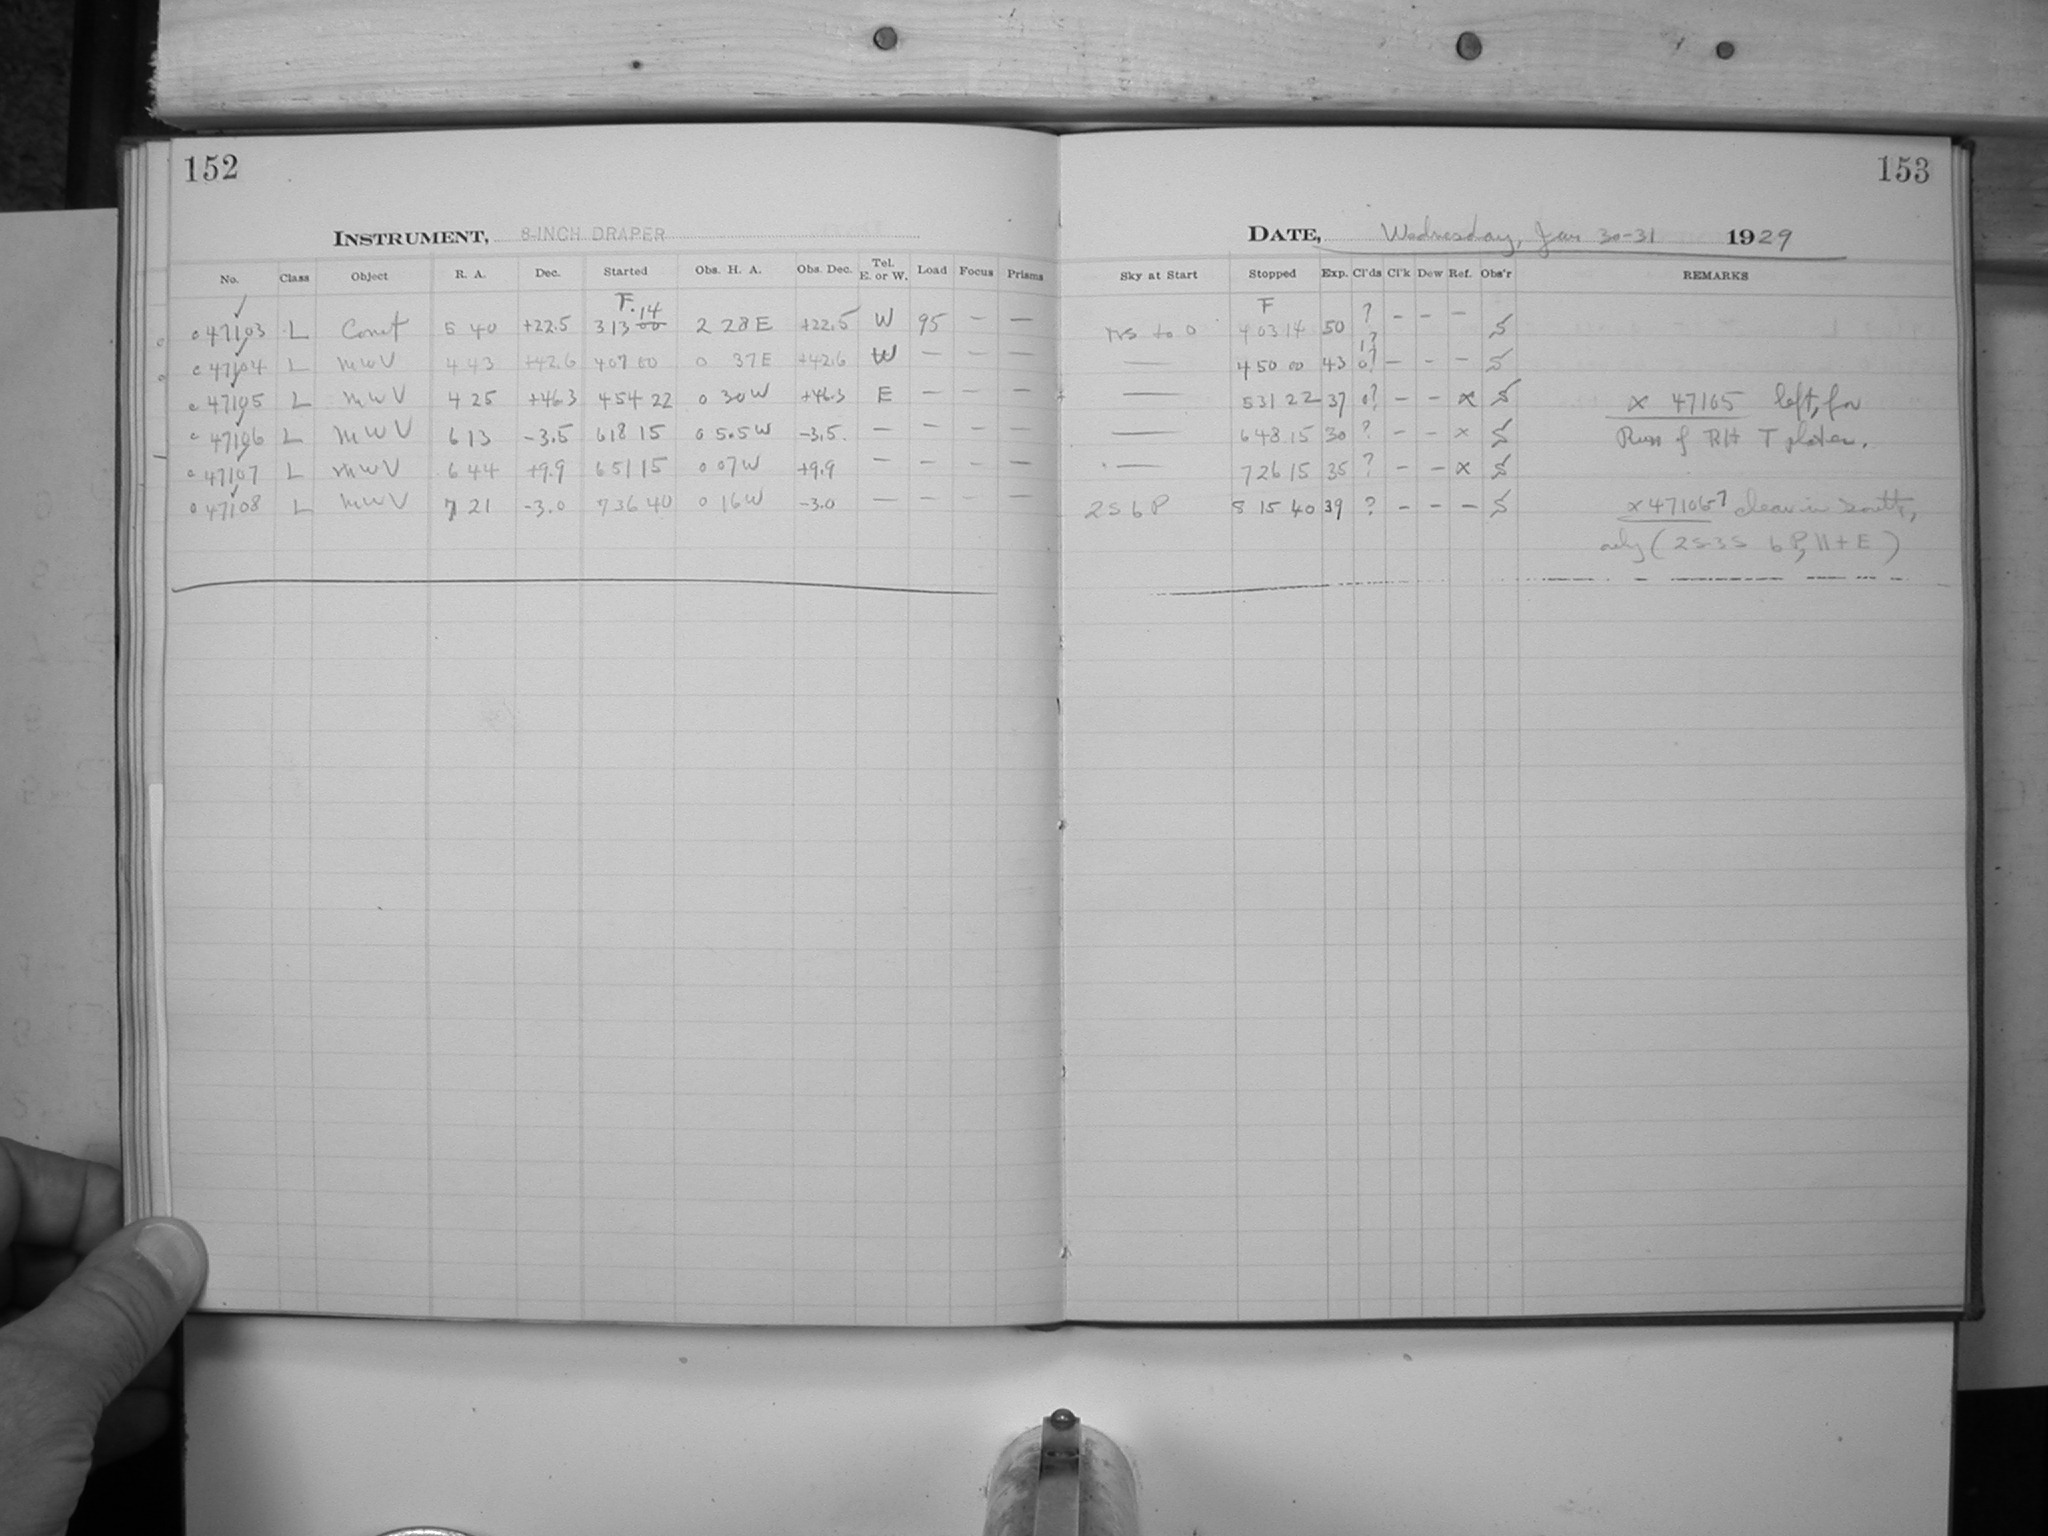 152
153
INSTRUMENT, 8-INCH DRAPER
DATE, Wednesday, Jan 30-31 1929
No. Class Object R. A. Dec. Started Obs. H. A. Obs. Dec. Tel. E. or W. Load Focus Prisms Sky at Start Stopped Exp. Cl'ds Cl'k Dew Ref. Obs'r REMARKS
F. 14 F
47103 L Comet 5 40 +22.5 3 13 00 2 28 E +22.5 W 95 — — to 0 4 03 14 50 ? – – –
47104 L MWV 4 43 +42.6 4 07 00 0 37 E +42.6 W — — — — 4 50 00 43 0? – – –
47105 L MWV 4 25 +46.3 4 54 22 0 30 W +46.3 E — — — — 5 31 22 37 0? – – x x 47105 left, for
47106 L MWV 6 13 -3.5 6 18 15 0 5.5 W -3.5. — — — — — 6 48 15 30 ? – – x Run of RH T plates.
47107 L MWV 6 44 +9.9 6 51 15 0 07 W +9.9 — — — — — 7 26 15 35 ? – – x
47108 L MWV 7 21 -3.0 7 36 40 0 16 W -3.0 — — — — 2S 6 P 8 15 40 39 ? – – – x 47106-7 clear in south,
only (2S-3S 6 P, 11+ E)